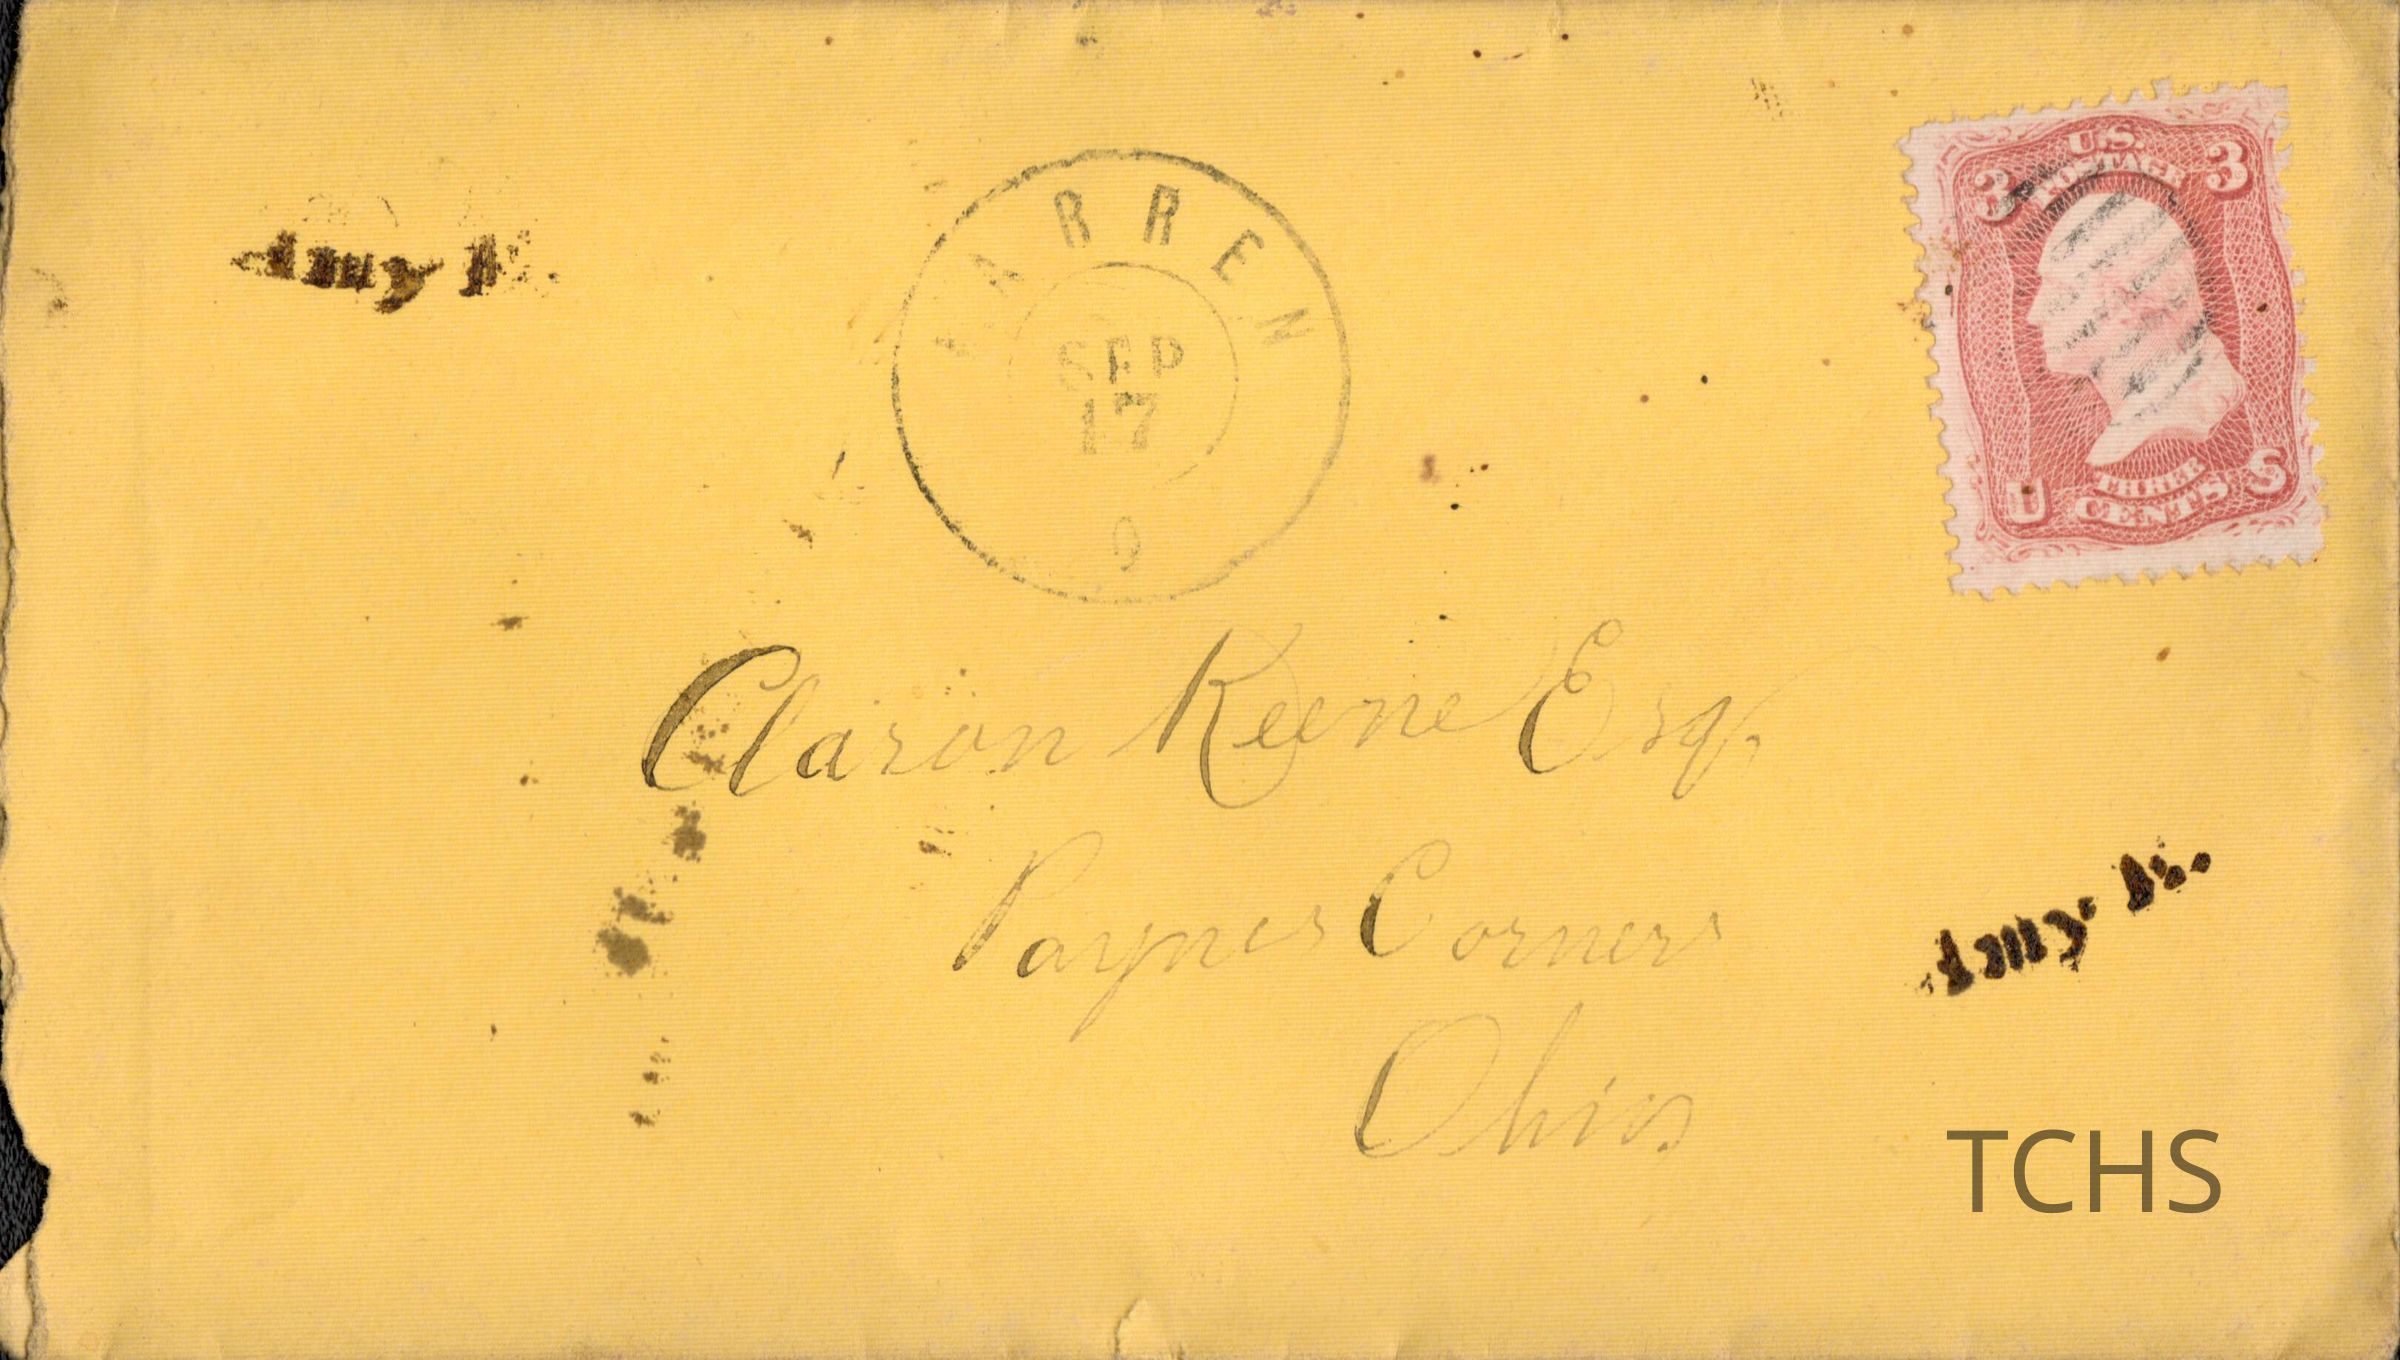 WARREN
SEP
17
O
U.S.
POSTAGE
3 3
THREE
CENTS
U S
Amy
Aaron Keene Esq.
Paynes Corners
Ohio
Amy
TCHS